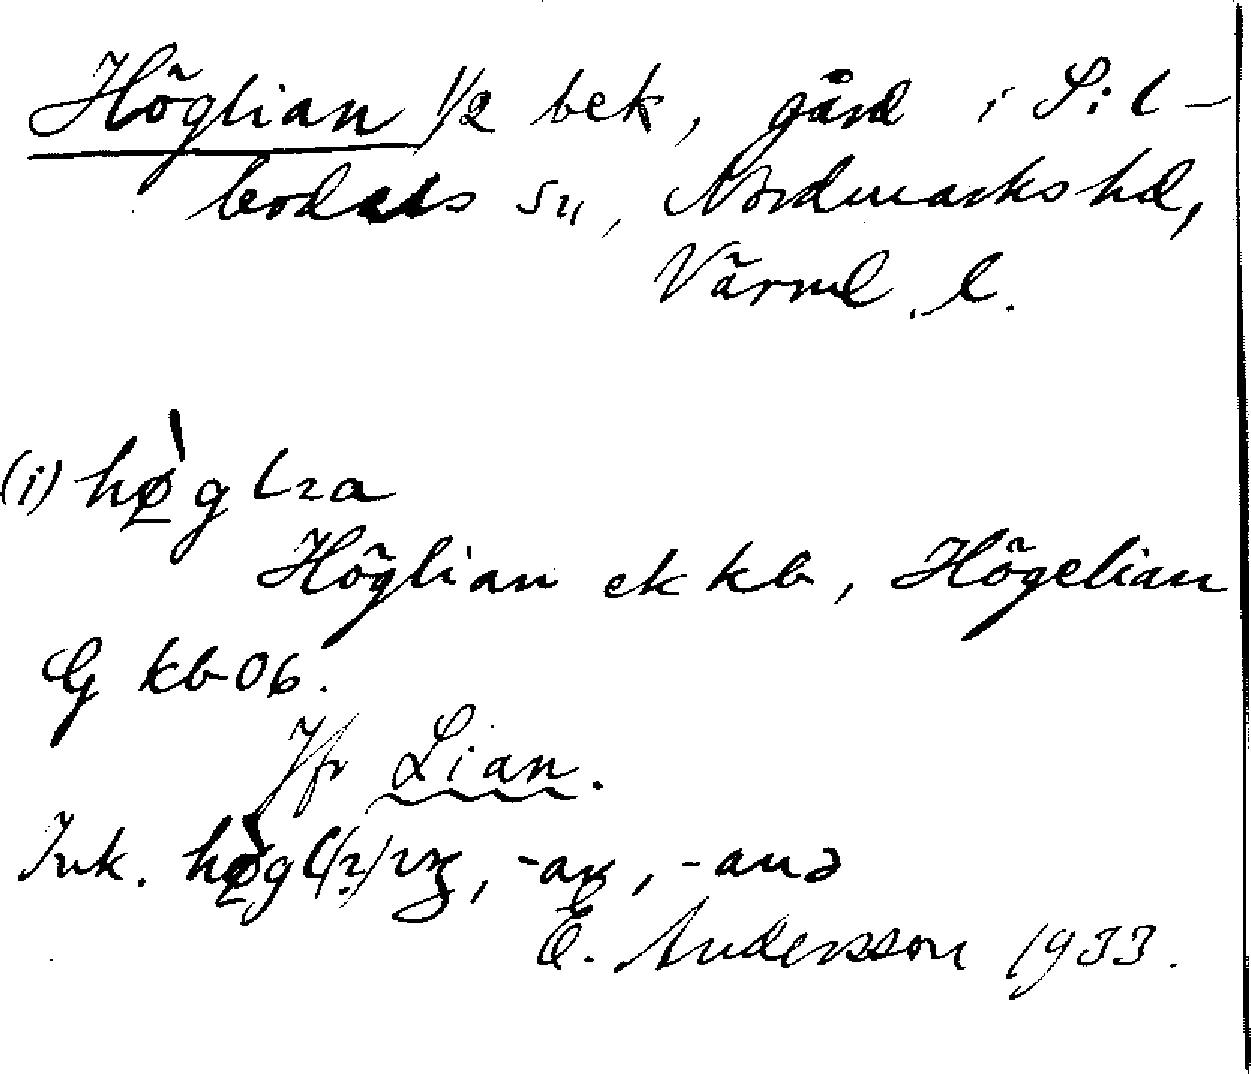 Höglian 1/2 bek, gård i Sil-
bodals sn, Nordmarks hd,
Värml. l.
(i) hø̀glıa
Höglian ek kb, Högelian
G kb 06.
Jfr Lian.
Ink.
E. Andersson 1933.